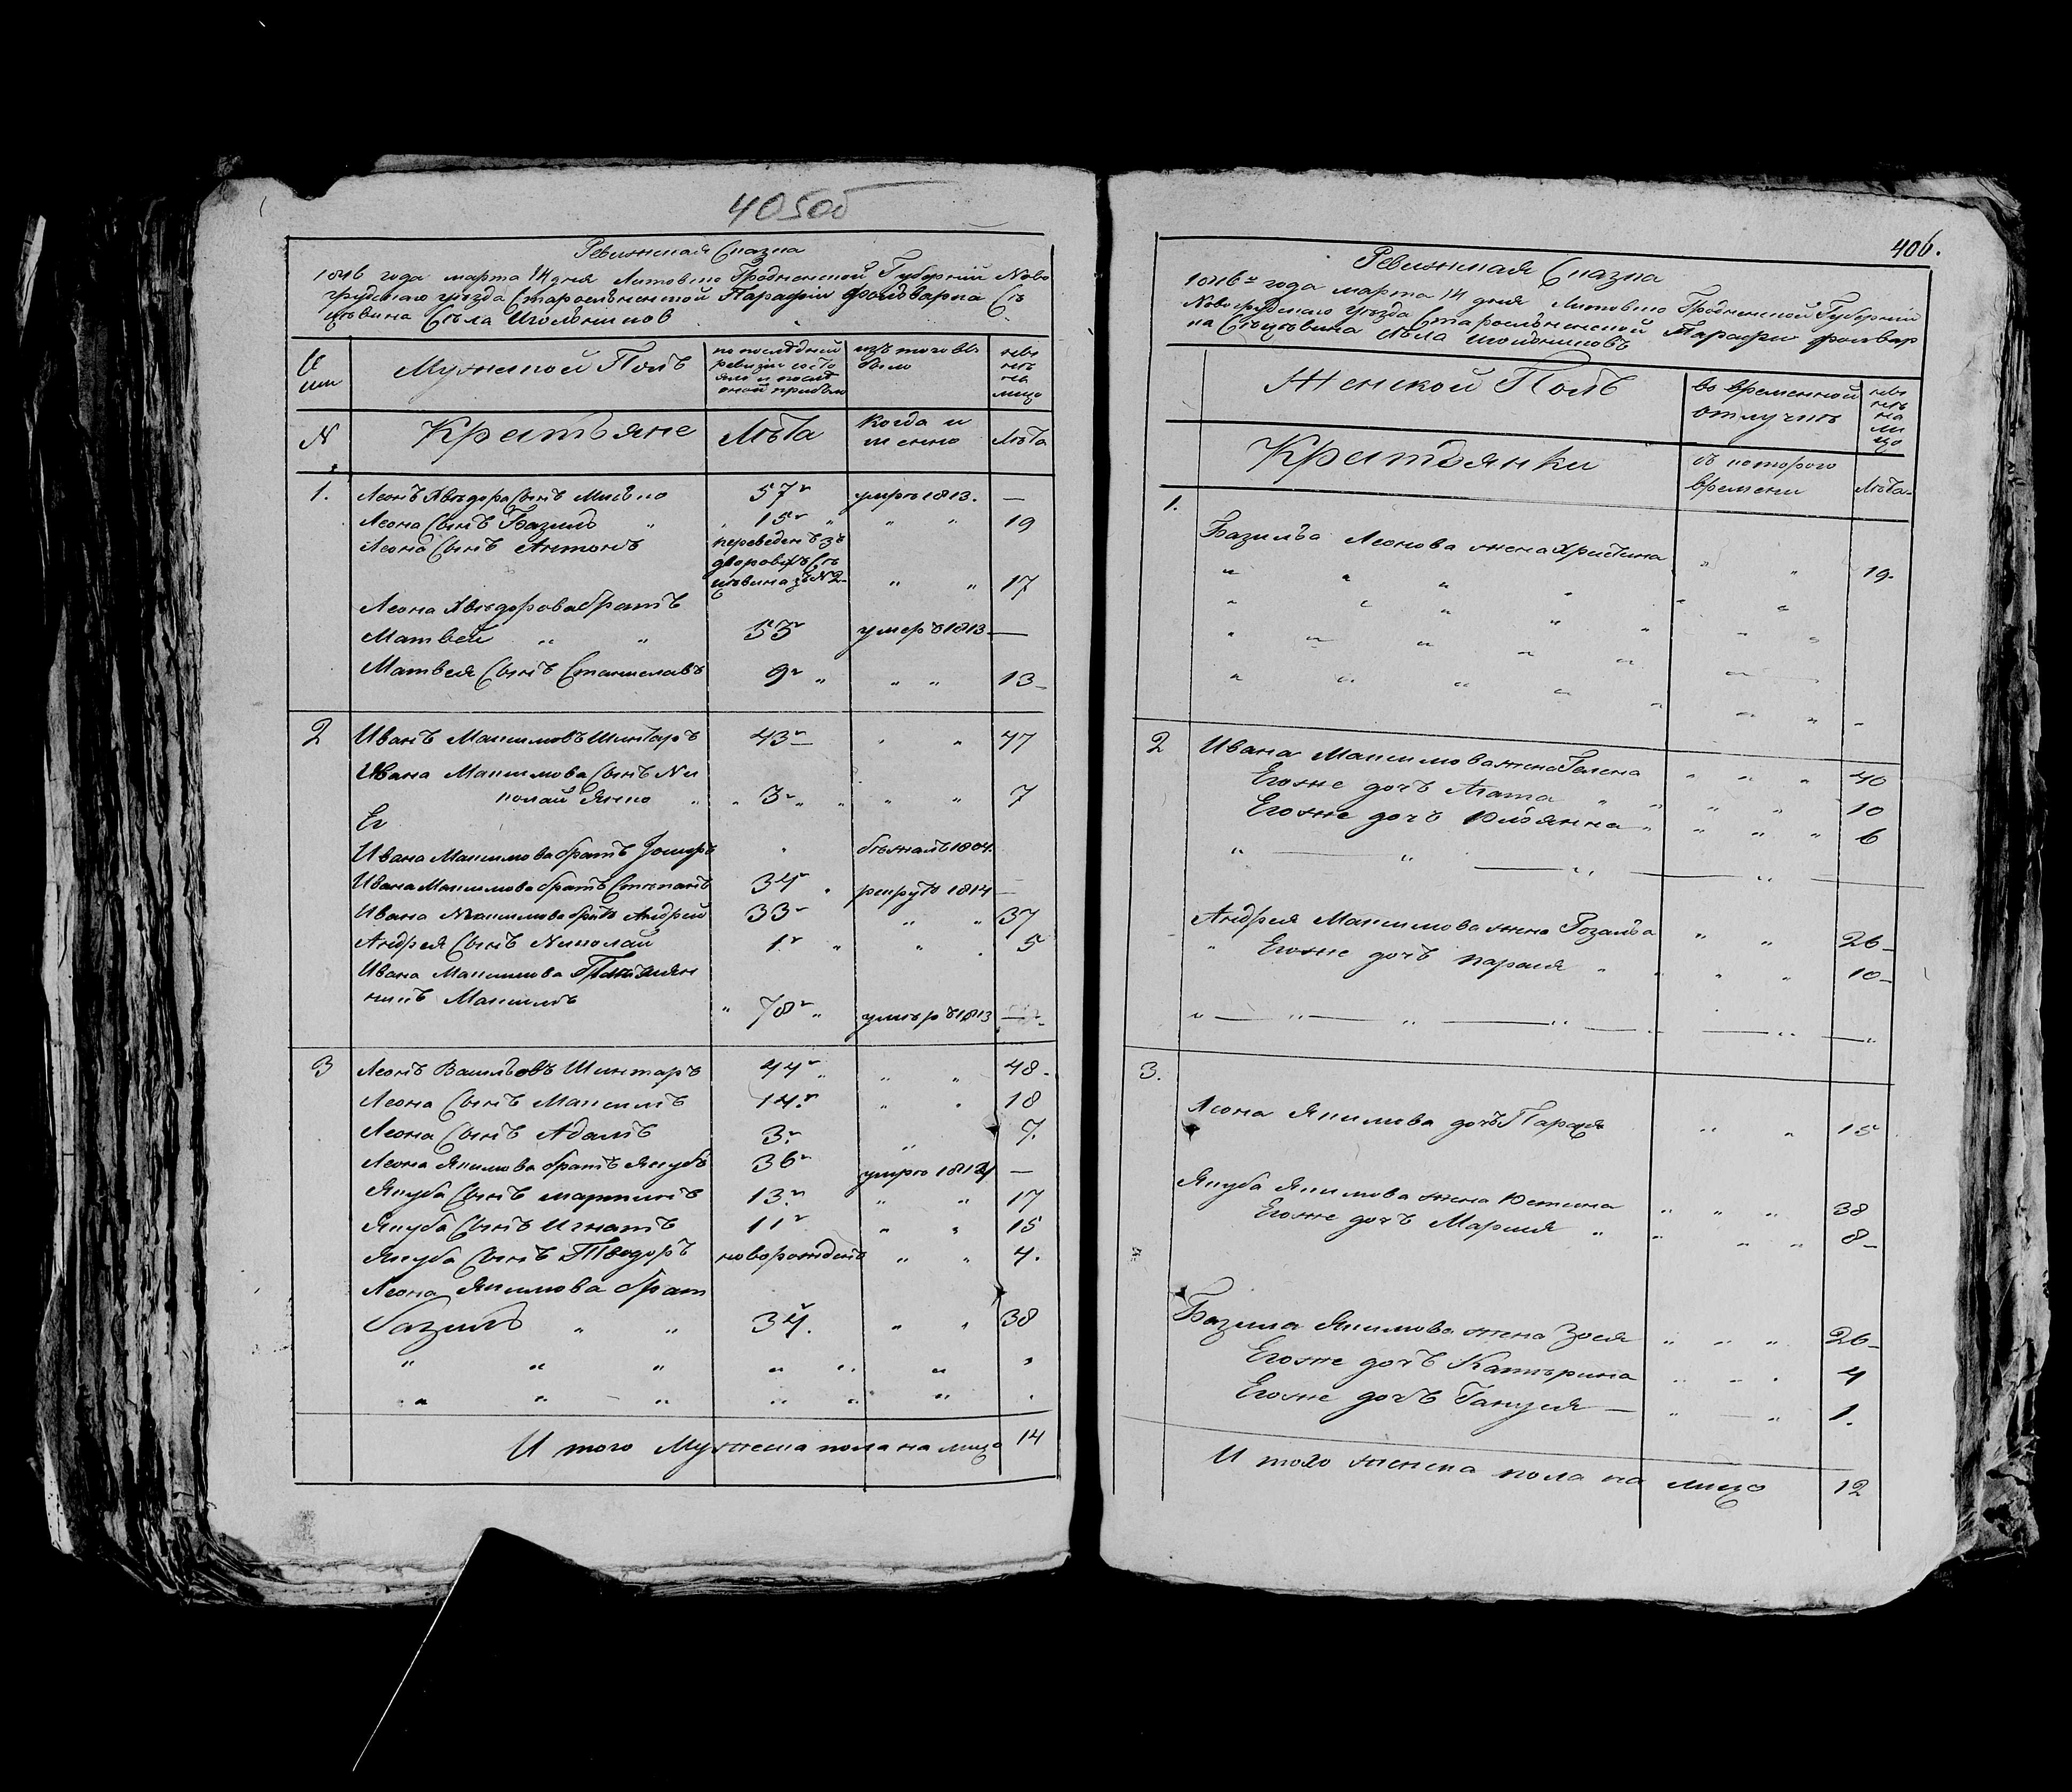 405об
Ревижская Сказка
1816 года марта 14 дня Литовско Гродненской Губерний Ново
грудскаго уезда Старосельнской Парафии фольварка Ст
Села
Мужеской Полъ
по последней
ревизии состо
яло и после
оной прибыло
изъ того вы
было
ныне
лицо
N
Крестьяне
Лѣта
Когда и
менно
Лѣта
1.
Леонъ Хведора Сынъ
57
умре 1813.
—
Леона Сынъ Базыль "
15
" "
19
Леона Сынъ Антонъ
переведенъ зъ
" "
17
Леона Хведорова братъ
Матвей " "
53
умеръ 1813
—
Матвея Сынъ Станиславъ
9 "
" "
13
2
Иванъ Максимовъ Шинтаръ
43
" "
47
Ивана Максимова Сынъ Ни
колай Янко "
" 3 " "
" "
7
Ег
Ивана Максимова братъ Іосифъ
"
бежалъ 1804.
Ивана Максимова братъ Степанъ
34 "
рекрутъ 1814
—
Ивана Максимова братъ Андрей
33
" "
37
Андрея Сынъ Николай
1. "
" "
5
Ивана Максимова
никъ Максимъ
" 78 "
умеръ 1813
—
3
Леонъ Васильовъ Шинтаръ
44 "
" "
48
Леона Сынъ Максимъ
14.
" "
18
Леона Сынъ Адамъ
3.
"
7.
Леона Якимова братъ Якубъ
36
умре 1812
—
Якуба Сынъ мартинъ
13.
" "
17
Якуба Сынъ Игнатъ
11
" "
15
Якуба Сынъ Теодоръ
новорожденъ
" "
4.
Леона Якимова брат
Базиль " "
34.
" "
38
" " " " " " "
" " " " " " "
И того Мужеска пола на лицо 14
406.
Ревижская Сказка
1816 года марта 14 дня Литовско Гродненской Губерний
Новогрудскаго уезда Старосельнской Парафи фольвар
ка Села
Женской Полъ
во временной
отлучке
ныне
на
ли
цо
Крестьянки
съ котораго
времени
Лѣта
1.
Базиля Леонова жена Христина " "
19.
" " " " " "
" " " " " "
" " " " " "
" " " " " "
2
Ивана Максимова жена Гелена " " "
40
Егоже дочъ Агата " " " "
10
Егоже дочъ Юльянна " " " "
6
" — " — " — " —
Андрея Максимова жена Розалья " "
26
" Егоже дочъ параска " " " "
10
" — " — " — " — " — "
3.
Леона Якимова дочъ Параска " "
15
Якуба Якимова жена Юстина " " "
38
Егоже дочъ Марыя " " " "
8
Базиля Якимова жена Зося " " "
26
Егоже дочъ Катерина " " "
4
Егоже дочъ Гануся — " — "
1.
И того женска пола на лицо 12